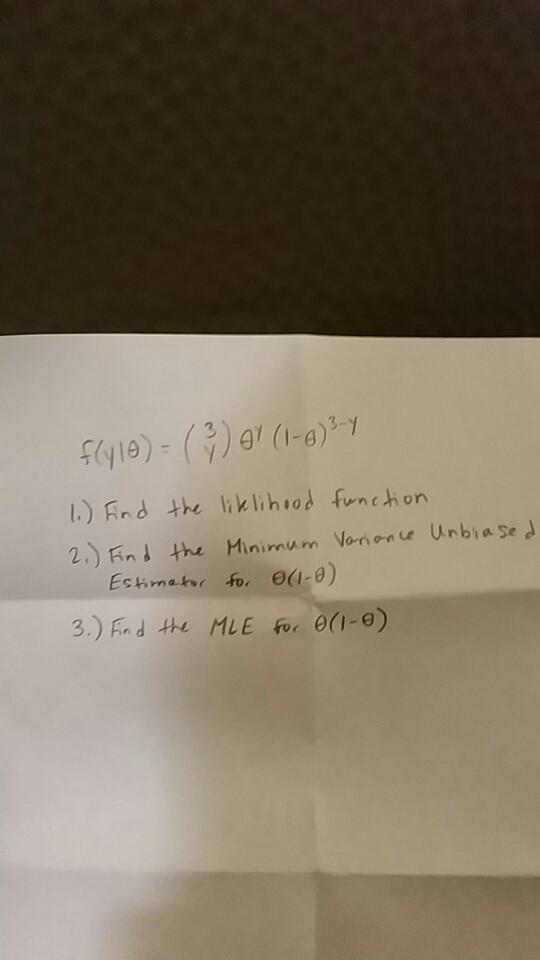 f(y|θ) = (3 y) θ^y (1-θ)^3-y
1.) Find the liklihood function
2.) Find the Minimum Variance Unbiased
Estimator for θ(1-θ)
3.) Find the MLE for θ(1-θ)